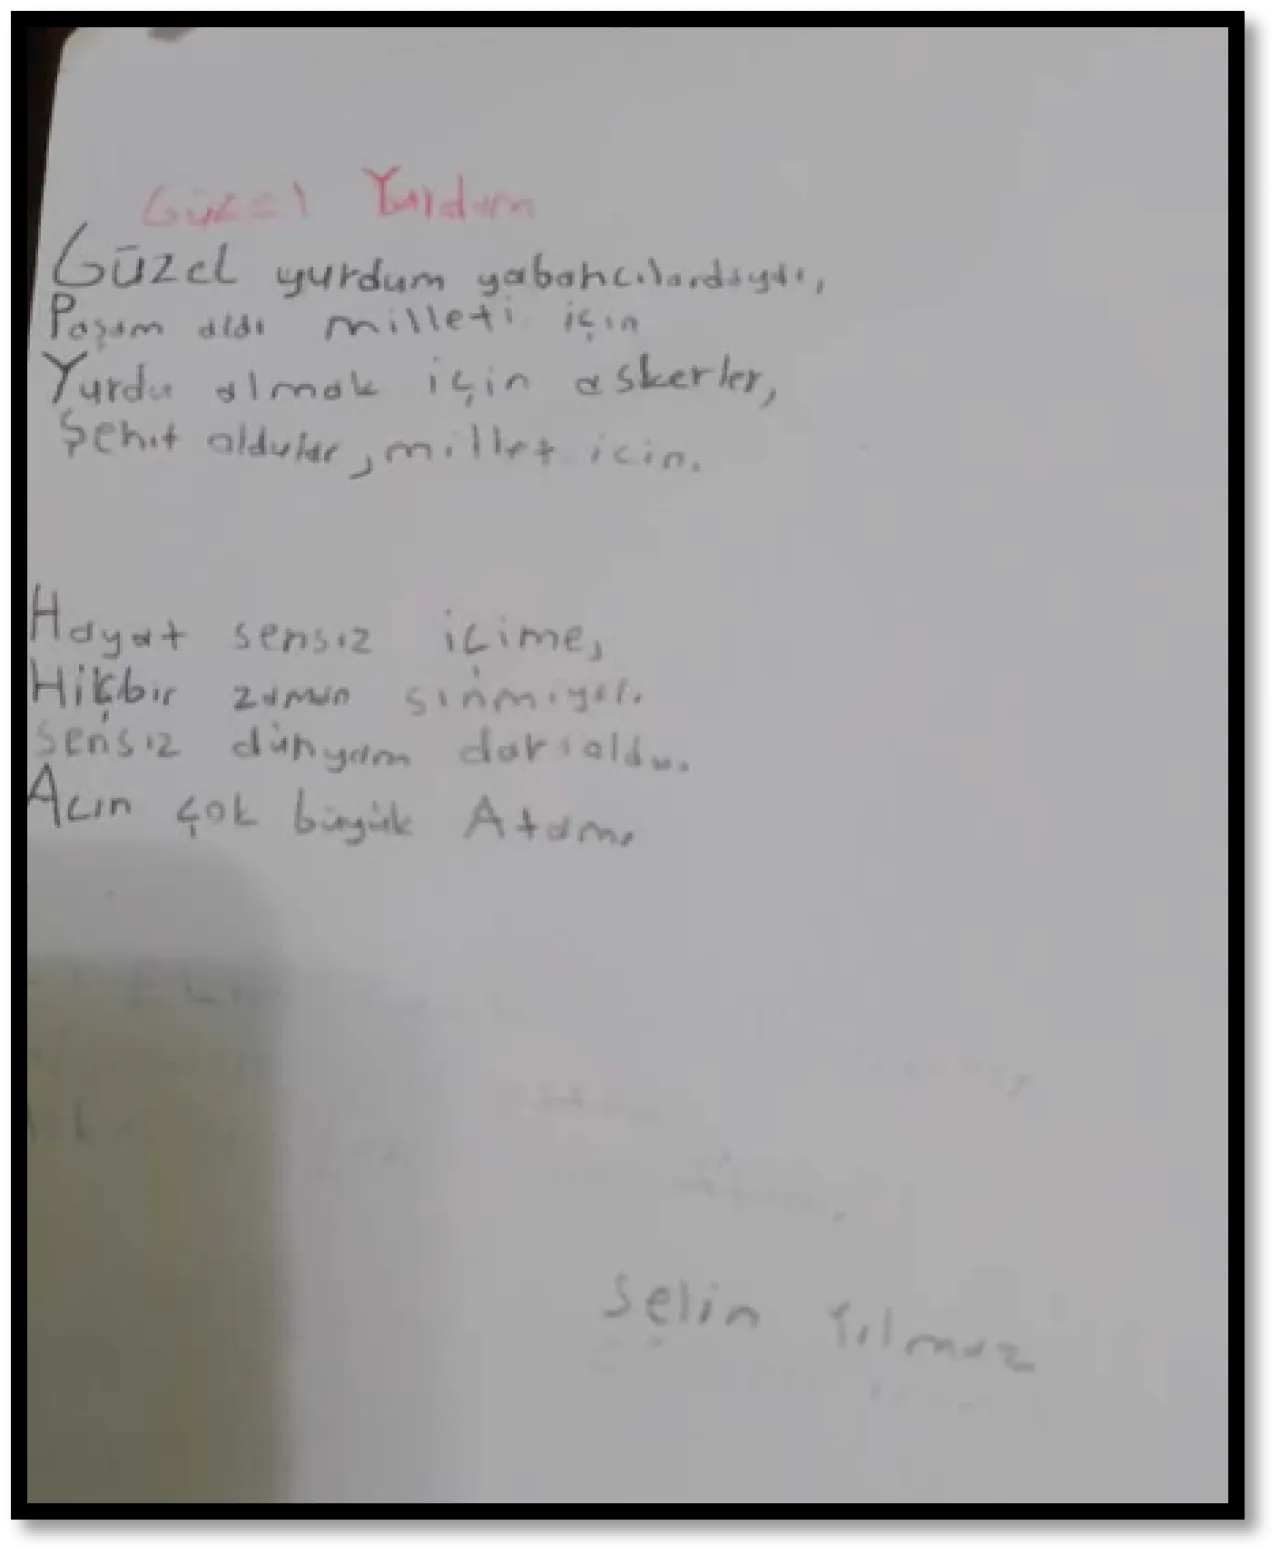 Güzel Yurdum
Güzel yurdum yabancılardaydı,
Paşam aldı milleti için
Yurdu almak için askerler,
Şehit oldular, millet icin.
Hayat sensiz içime,
Hiçbir zaman sinmiyor.
Sensiz dünyam dar oldu.
Acın çok büyük Atam.
Selin Yılmaz